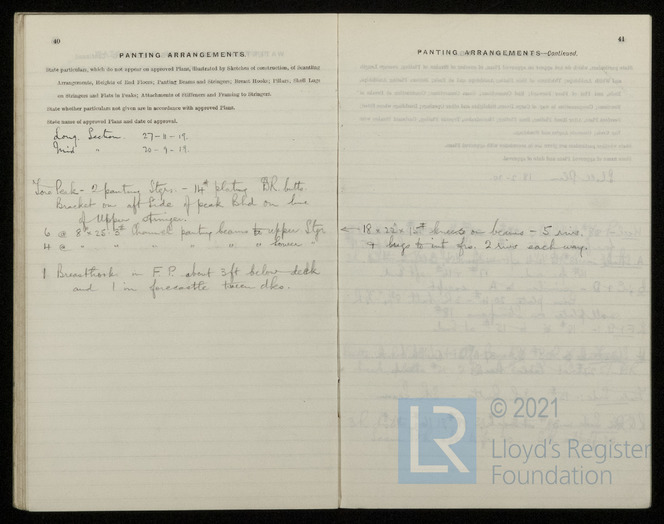 40
PANTING ARRANGEMENTS.
State particulars, which do not appear on approved Plans, illustrated by Sketches of construction, of Scantling
Arrangements, Heights of End Floors; Panting Beams and Stringers; Breast Hooks; Pillars, Shell Lugs
on Stringers and Flats in Peaks; Attachments of Stiffeners and Framing to Stringers.
State whether particulars not given are in accordance with approved Plans.
State name of approved Plans and date of approval.
Long. Section. 27-11-19.
Mid " 20-9-19.
Fore Peak - 2 panting Stgrs. - 14# plating DR butts.
Bracket on aft side of peak Blkd on line
of Upper stringer.
6 @ 8" Channel panting beams to upper Stgr
4 @ " " " " " " lower "
1 Breasthook in F.P. about 3 ft below deck
and 1 in forecastle tween dks.
41
PANTING ARRANGEMENTS—Continued.
knees on beams - 5 rivs.
& lugs to int frs. 2 rivs each way.
LR
© 2021
Lloyd's Register
Foundation